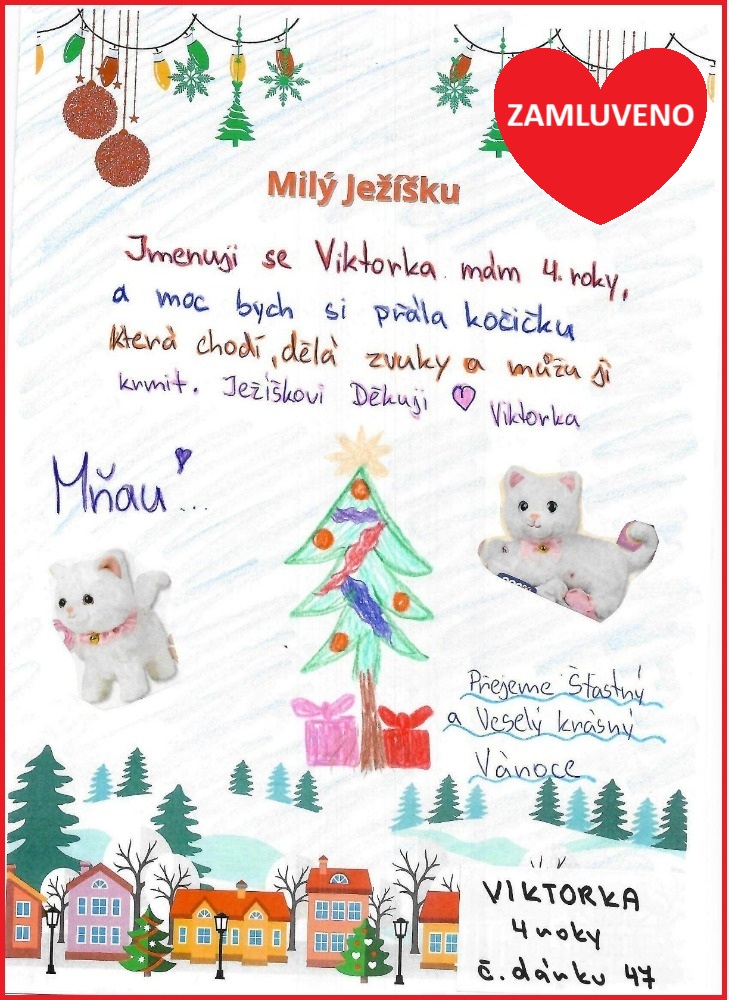 ZAMLUVENO
Milý Ježíšku
Jmenuji se Viktorka mám 4. roky,
a moc bych si přála kočičku
která chodí, dělá zvuky a můžu ji
krmit. Ježíškovi Děkuji Viktorka
Mňau ...
Přejeme Šťastný
a Veselý krásný
Vánoce
VIKTORKA
4 roky
č. dárku 47